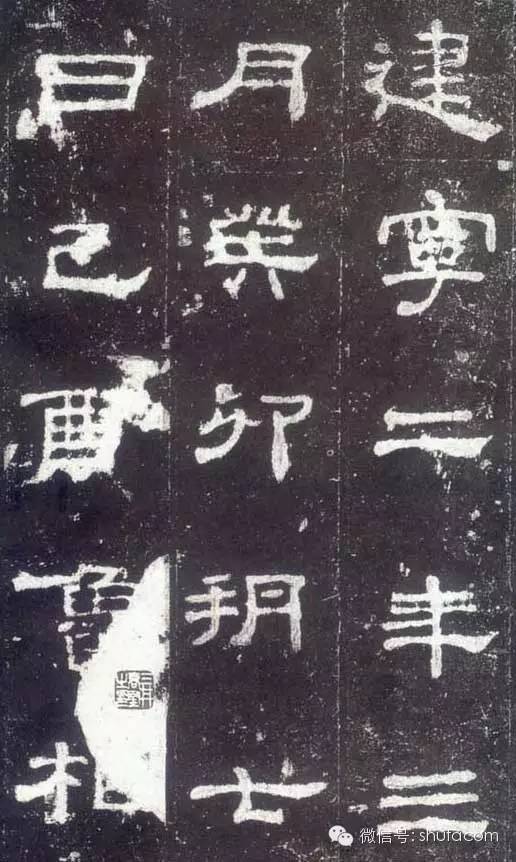 建寧二年三
月癸卯朔七
日己酉魯相
微信号: shufacom